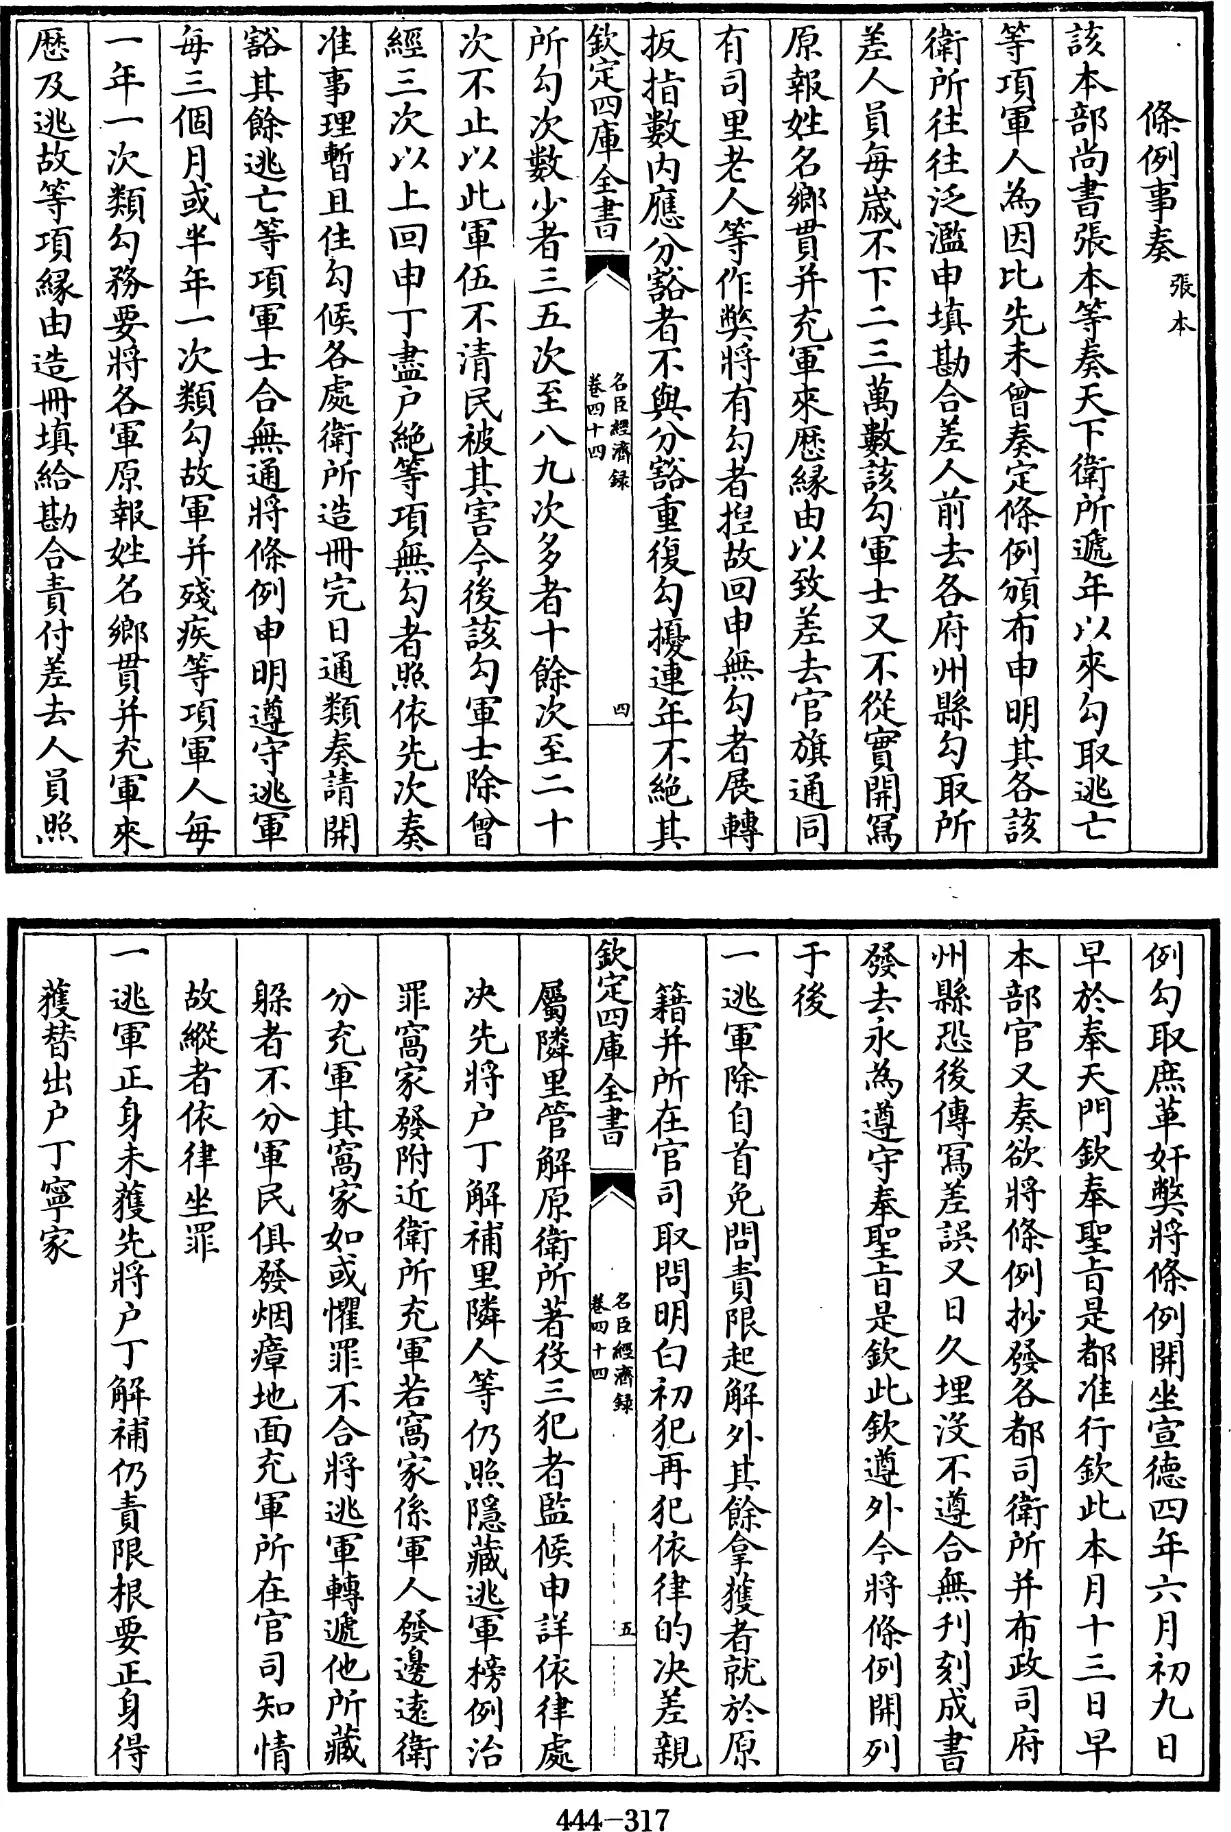 條例事奏 張本
該本部尚書張本等奏天下衛所遞年以來勾取逃亡
等項軍人為因比先未曾奏定條例頒布申明其各該
衛所往往泛濫申填勘合差人前去各府州縣勾取所
差人員每歲不下二三萬數該勾軍士又不從實開寫
原報姓名鄉貫并充軍來歷緣由以致差去官旗通同
有司里老人等作弊將有勾者揑故回申無勾者展轉
扳指數内應分豁者不與分豁重復勾擾連年不絶其
欽定四庫全書
名臣經濟録
卷四十四
四
所勾次數少者三五次至八九次多者十餘次至二十
次不止以此軍伍不清民被其害今後該勾軍士除曾
經三次以上回申丁盡户絶等項無勾者照依先次奏
准事理暫且住勾候各處衛所造冊完日通類奏請開
豁其餘逃亡等項軍士合無通將條例申明遵守逃軍
每三個月或半年一次類勾故軍并殘疾等項軍人每
一年一次類勾務要將各軍原報姓名鄉貫并充軍來
歷及逃故等項緣由造冊填給勘合責付差去人員照
例勾取庶革奸弊將條例開坐宣德四年六月初九日
早於奉天門欽奉聖旨是都准行欽此本月十三日早
本部官又奏欲將條例抄發各都司衛所并布政司府
州縣恐後傳寫差誤又日久埋沒不遵合無刋刻成書
發去永為遵守奉聖旨是欽此欽遵外今將條例開列
于後
一逃軍除自首免問責限起解外其餘拿獲者就於原
籍并所在官司取問明白初犯再犯依律的决差親
欽定四庫全書
名臣經濟録
卷四十四
五
屬隣里管解原衛所著役三犯者監候申詳依律處
决先將户丁解補里隣人等仍照隱藏逃軍榜例治
罪窩家發附近衛所充軍若窩家係軍人發邊遠衛
分充軍其窩家如或懼罪不合將逃軍轉遞他所藏
躲者不分軍民俱發烟瘴地面充軍所在官司知情
故縱者依律坐罪
一逃軍正身未獲先將户丁解補仍責限根要正身得
獲替出户丁寧家
444-317